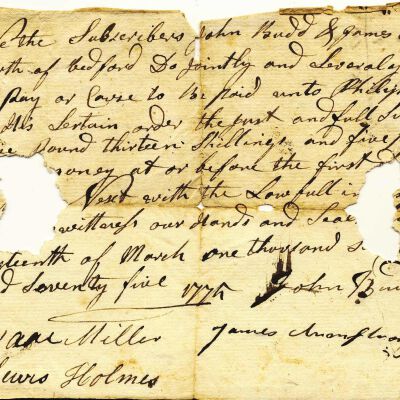 the Subscribers John Budd & James
rth of Bedford Do Jointly and Severaly
pay or Cause to be paid unto Philip
His Sertain order the just and full Su
ie Pound thirteen Shillings and five
money at or before the first D
Next with the Lawfull in
wittness our Hands and Seae
teenth of March one thousand s
d Seventy five 1775 John Bu
aac Miller James
Lewis Holmes